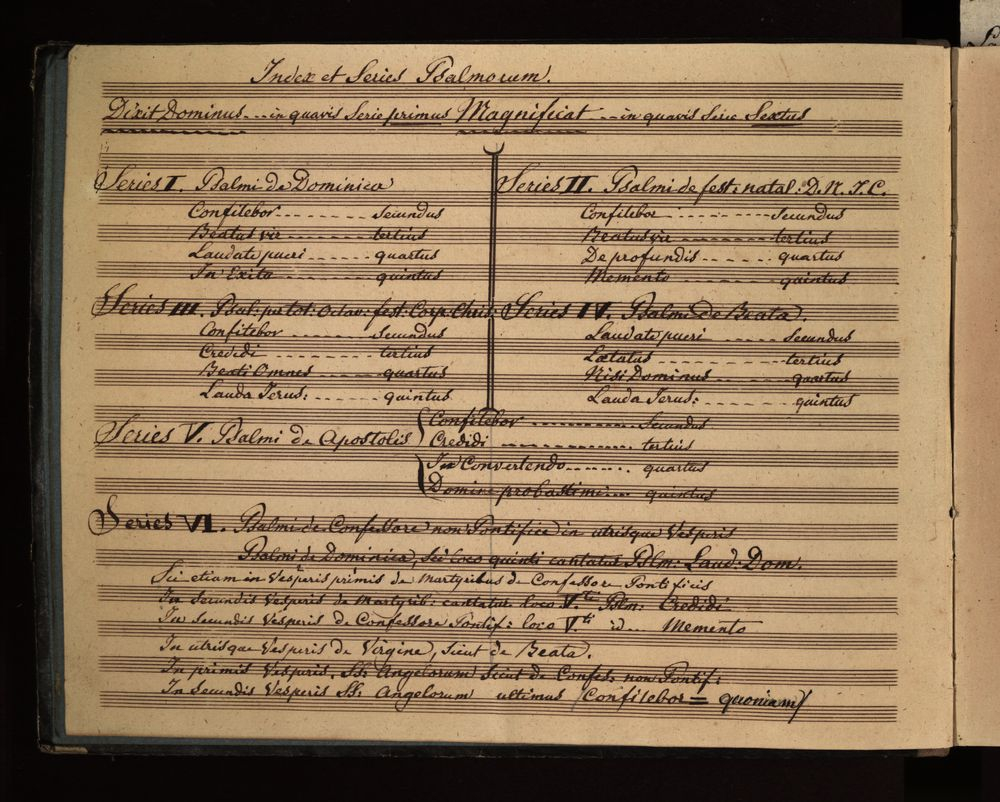 Index et Series Psalmorum.
Dixit Dominus --- in quavis Serie primus Magnificat --- in quavis Serie Sextus
Series I. Psalmi de Dominica
Confitebor - - - - - - - secundus
Beatus vir - - - - - - - tertius
Laudate pueri - - - - - - quartus
In Exitu - - - - - - - quintus
Series II. Psalmi de fest: natal: D. N. J. C.
Confitebor - - - - - - - secundus
Beatus vir - - - - - - - tertius
De profundis - - - - - - quartus
Memento - - - - - - - quintus
Series III. Psal: per tot: Octav: fest: Corp: Chris:
Confitebor - - - - - - - secundus
Credidi - - - - - - - tertius
Beati Omnes - - - - - - quartus
Lauda Jerus: - - - - - - quintus
Series IV. Psalmi de Beata.
Laudate pueri - - - - - - secundus
Lætatus - - - - - - - tertius
Nisi Dominus - - - - - - quartus
Lauda Jerus: - - - - - - quintus
Series V. Psalmi de Apostolis
Confitebor - - - - - - - secundus
Credidi - - - - - - - tertius
In Convertendo - - - - - - quartus
Domine probasti me - - - - quintus
Series VI. Psalmi de Confessore non Pontifice in utrisque Vesperis
Psalmi de Dominica, sed loco quinti cantatur Pslm: Laud: Dom.
Sic etiam in Vesperis primis de Martyribus de Confessore Pontificis
In Secundis Vesperis de Martyrib: cantatur loco V.ti Pslm: Credidi
In Secundis Vesperis de Confessore Pontif: loco V.ti id--- Memento
In utrisque Vesperis de Virgine, sicut de Beata.
In primis Vesperis. SS: Angelorum sicut de Confess: non Pontif:
In Secundis Vesperis SS: Angelorum ultimus /Confitebor = quoniam/